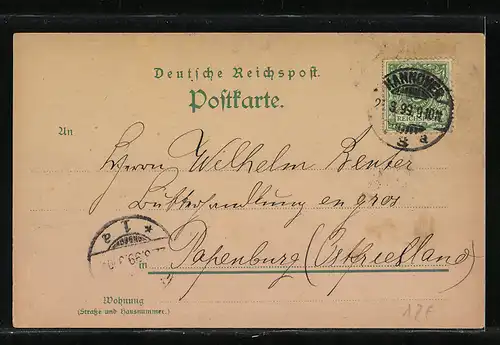 Deutsche Reichspost.
Postkarte.
HANNOVER
3. 99. 9-10N
REICHSPOST
An
Herrn Wilhelm Benter
Butterhandlung en gros
in Papenburg (Ostfriesland)
* 1 a
Wohnung
(Straße und Hausnummer.)